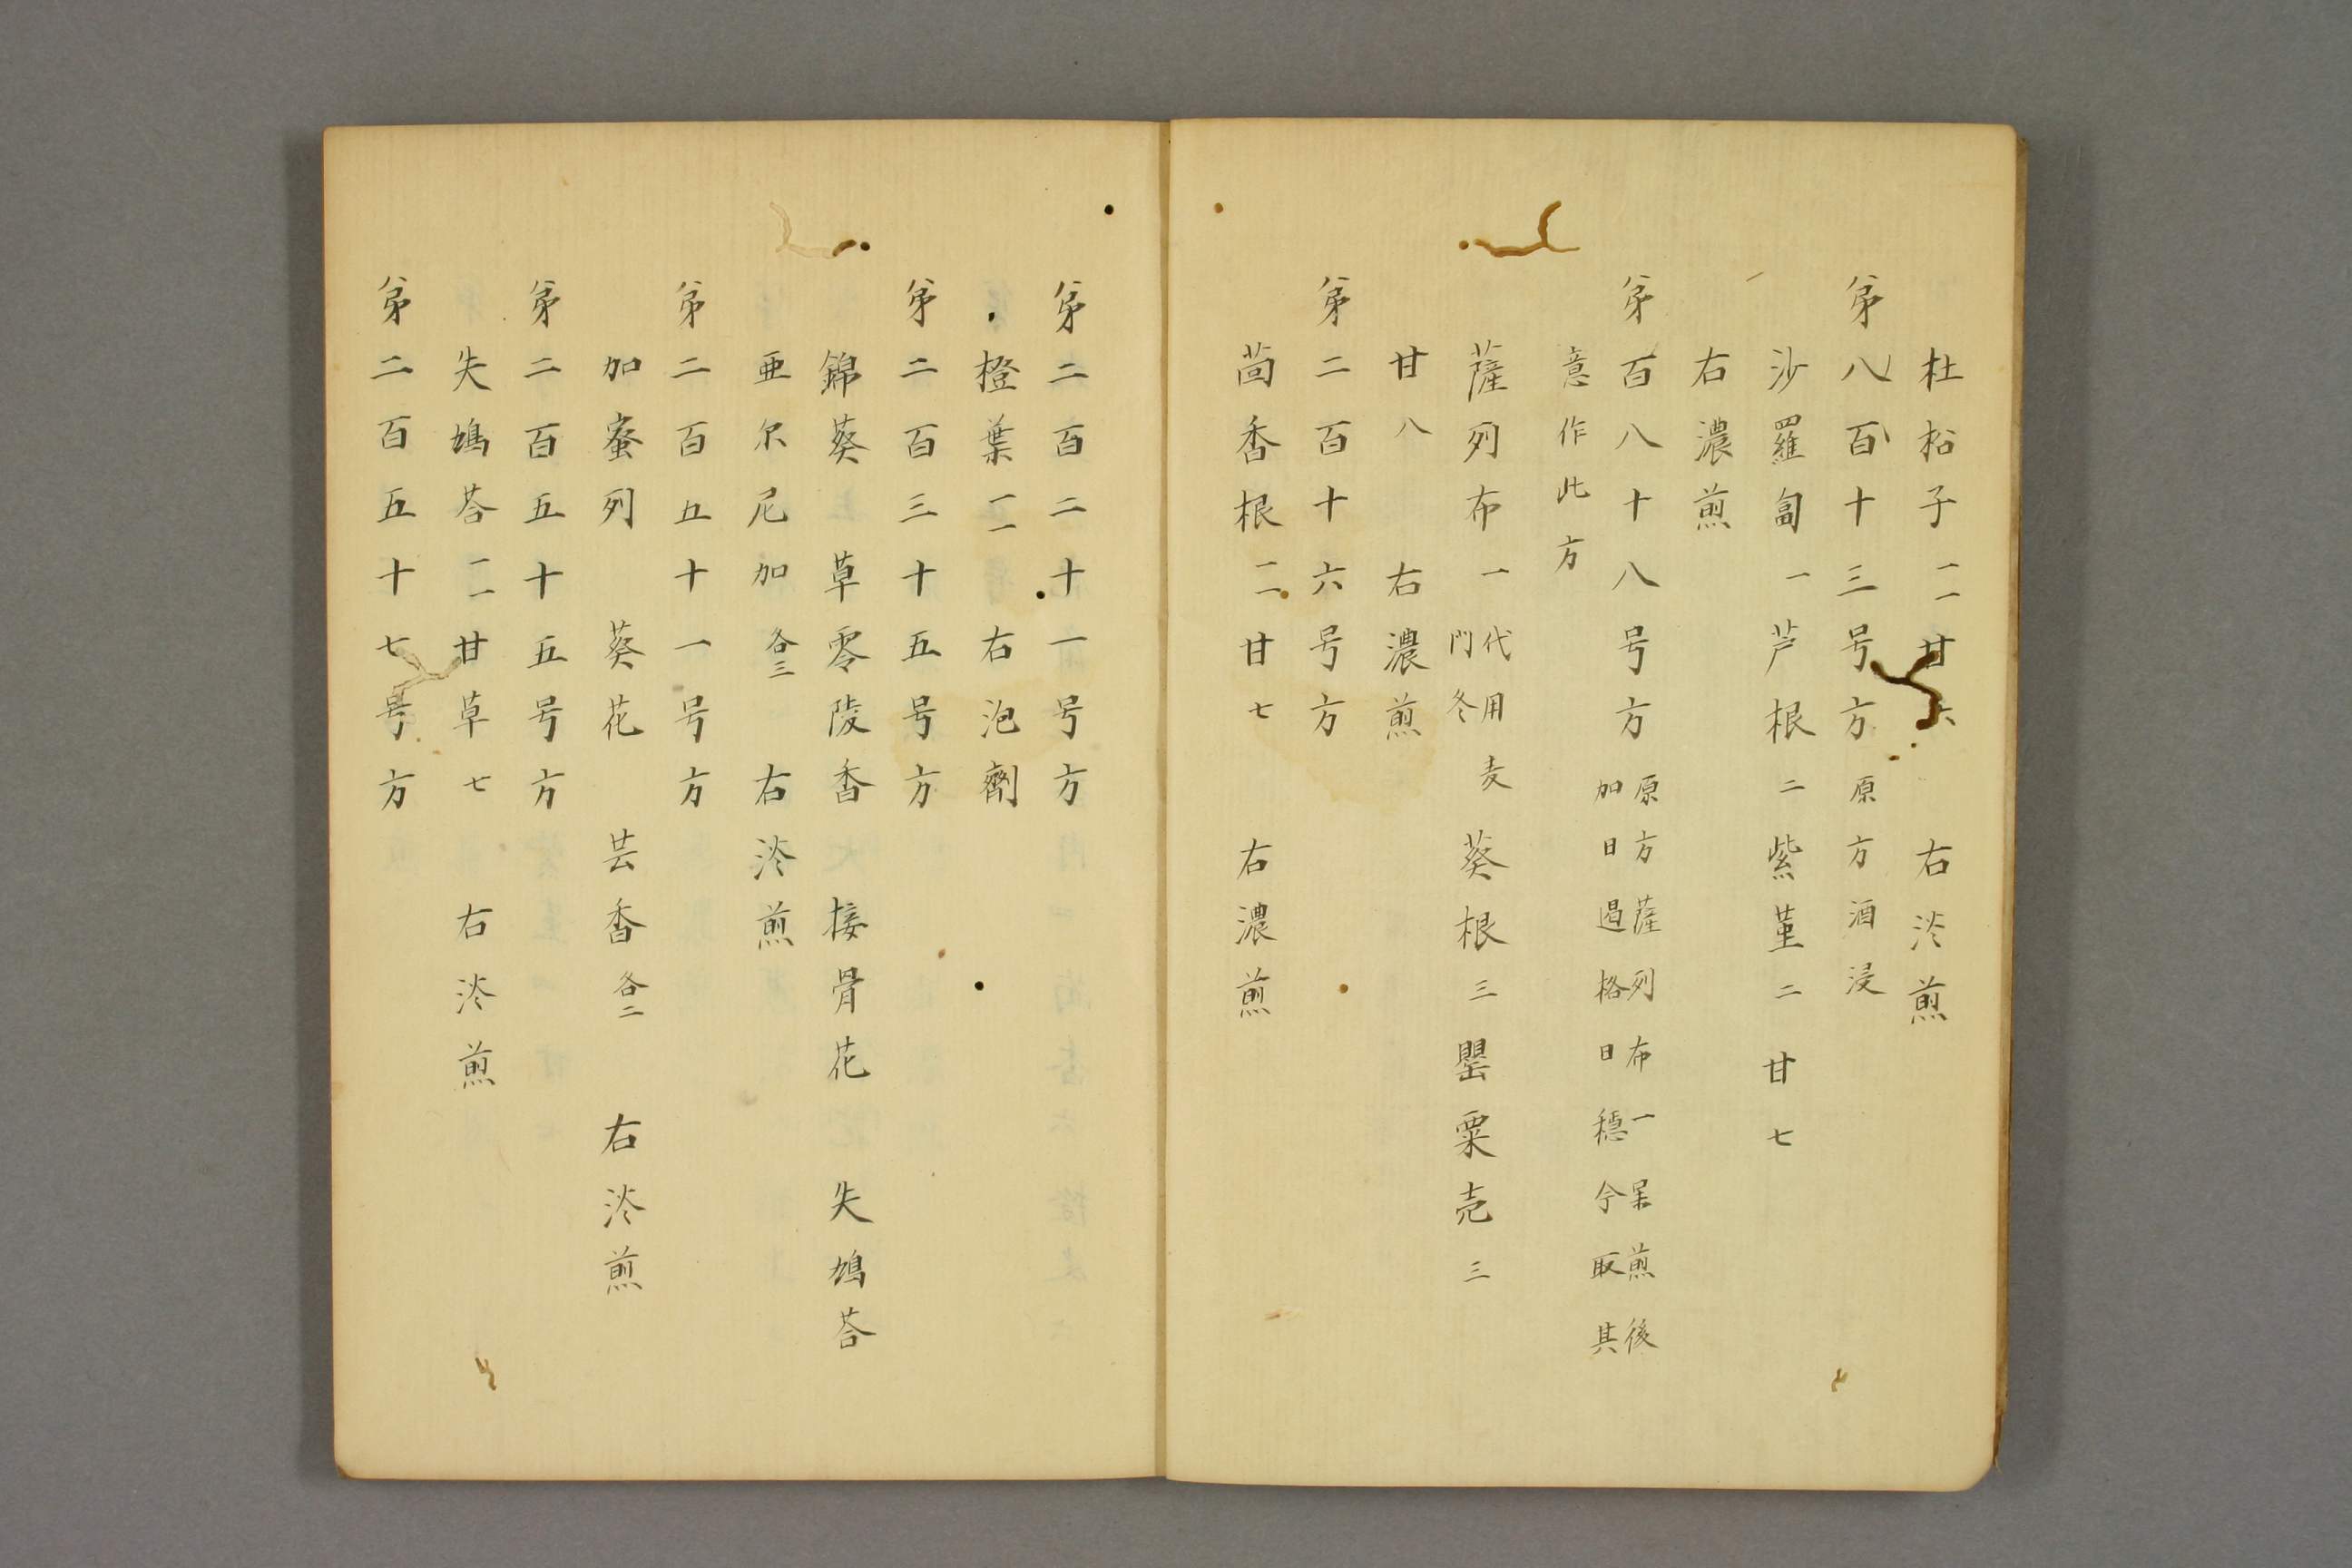 杜松子二一甘六 右淡煎
第八百十三号方 原方酒浸
沙羅匐一芦根二紫菫二甘七
右濃煎
第百八十八号方 原方薩列布一㕩煎後
加日過格日穏今取其
意作此方
薩列布一 代用麦
門冬 葵根三罌粟壳三
甘八 右濃煎
第二百十六号方
茴香根二二甘七 右濃煎
第二百二十一号方
橙葉二一右泡劑
第二百三十五号方
錦葵 草零陵香 接骨花 失鳩荅
亜尔尼加各三 右淡煎
第二百五十一号方
加蜜列 葵花 芸香各二 右淡煎
第二百五十五号方
失鳩荅二一甘草七 右淡煎
第二百五十七号方